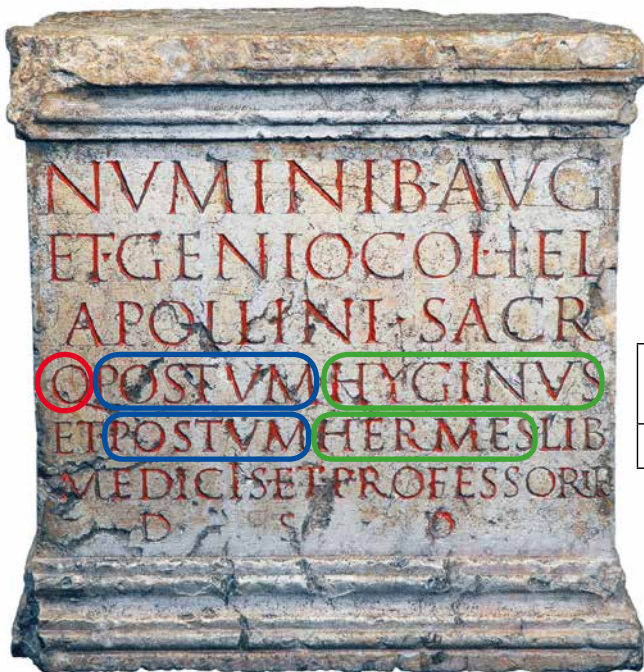 NVMINIB·AVG
ET·GENIO·COL·HEL
APOLLINI·SACR
Q POSTVM HYGINVS
ET POSTVM HERMES LIB
MEDICIS ET PROFESSORIB
D S D